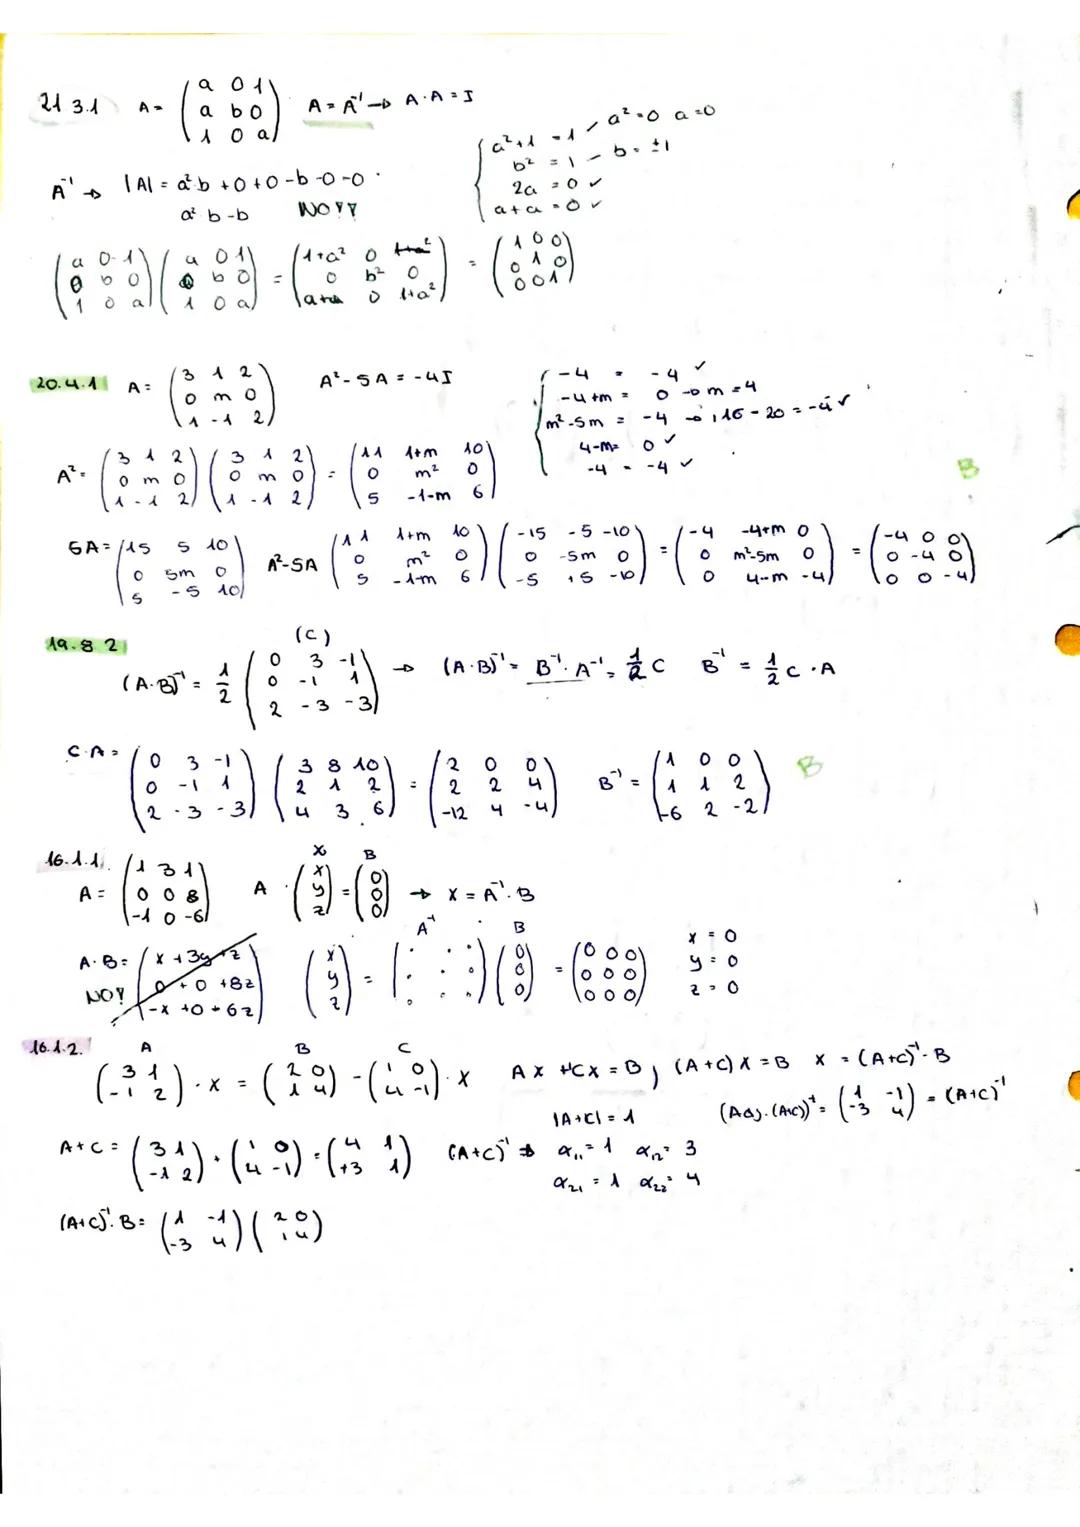 21 3.1 A = (a 0 1 / a b 0 / 1 0 a) A = A⁻¹ → A·A = I
{a²+1 = 1 / a²=0 a=0
b² = 1 – b = ±1
2a = 0 ✓
a+a = 0 ✓
A⁻¹ → |A| = a²b + 0 + 0 - b - 0 - 0
a² b - b NO!!
(a 0 1 / 0 b 0 / 1 0 a) (a 0 1 / 0 b 0 / 1 0 a) = (1+a² 0 / 0 b² 0 / a+a 0 1+a²) = (1 0 0 / 0 1 0 / 0 0 1)
20.4.1 A = (3 1 2 / 0 m 0 / 1 -1 2) A² - 5A = -4I
{-4 = -4 ✓
-4+m = 0 → m = 4
m²-5m = -4 → 16 - 20 = -4 ✓
4-m = 0 ✓
-4 = -4 ✓
A² = (3 1 2 / 0 m 0 / 1 -1 2) (3 1 2 / 0 m 0 / 1 -1 2) = (11 1+m 10 / 0 m² 0 / 5 -1-m 6)
B
5A = (15 5 10 / 0 5m 0 / 5 -5 10) A²-5A (11 1+m 10 / 0 m² 0 / 5 -1-m 6) (-15 -5 -10 / 0 -5m 0 / -5 +5 -10) = (-4 -4+m 0 / 0 m²-5m 0 / 0 4-m -4) = (-4 0 0 / 0 -4 0 / 0 0 -4)
19.8 2 (C)
(A·B)⁻¹ = 1/2 (0 3 -1 / 0 -1 1 / 2 -3 -3) → (A·B)⁻¹ = B⁻¹·A⁻¹ = 1/2 C B⁻¹ = 1/2 C·A
C·A = (0 3 -1 / 0 -1 1 / 2 -3 -3) (3 8 10 / 2 1 2 / 4 3 6) = (2 0 0 / 2 2 4 / -12 4 -4) B⁻¹ = (1 0 0 / 1 1 2 / -6 2 -2) B
16.1.1. X B
A = (1 3 1 / 0 0 8 / -1 0 -6) A · (x / y / z) = (0 / 0 / 0) → X = A⁻¹·B
A⁻¹ B
A·B = (x + 3y + z / 0 + 0 + 8z / -x + 0 + 6z) NO! (x / y / z) = (· · · / · · · / · · ·) (0 / 0 / 0) = (0 0 0 / 0 0 0 / 0 0 0) x = 0 y = 0 z = 0
16.1.2. A B C
(3 1 / -1 2) · X = (2 0 / 1 4) - (1 0 / 4 -1) · X AX + CX = B, (A+C) X = B X = (A+C)⁻¹·B
|A+C| = 1 (Adj.(A+C))ᵗ = (1 -1 / -3 4) = (A+C)⁻¹
A+C = (3 1 / -1 2) + (1 0 / 4 -1) = (4 1 / +3 1) (A+C)⁻¹ → α₁₁ = 1 α₁₂ = 3
α₂₁ = 1 α₂₂ = 4
(A+C)⁻¹·B = (1 -1 / -3 4) (2 0 / 1 4)